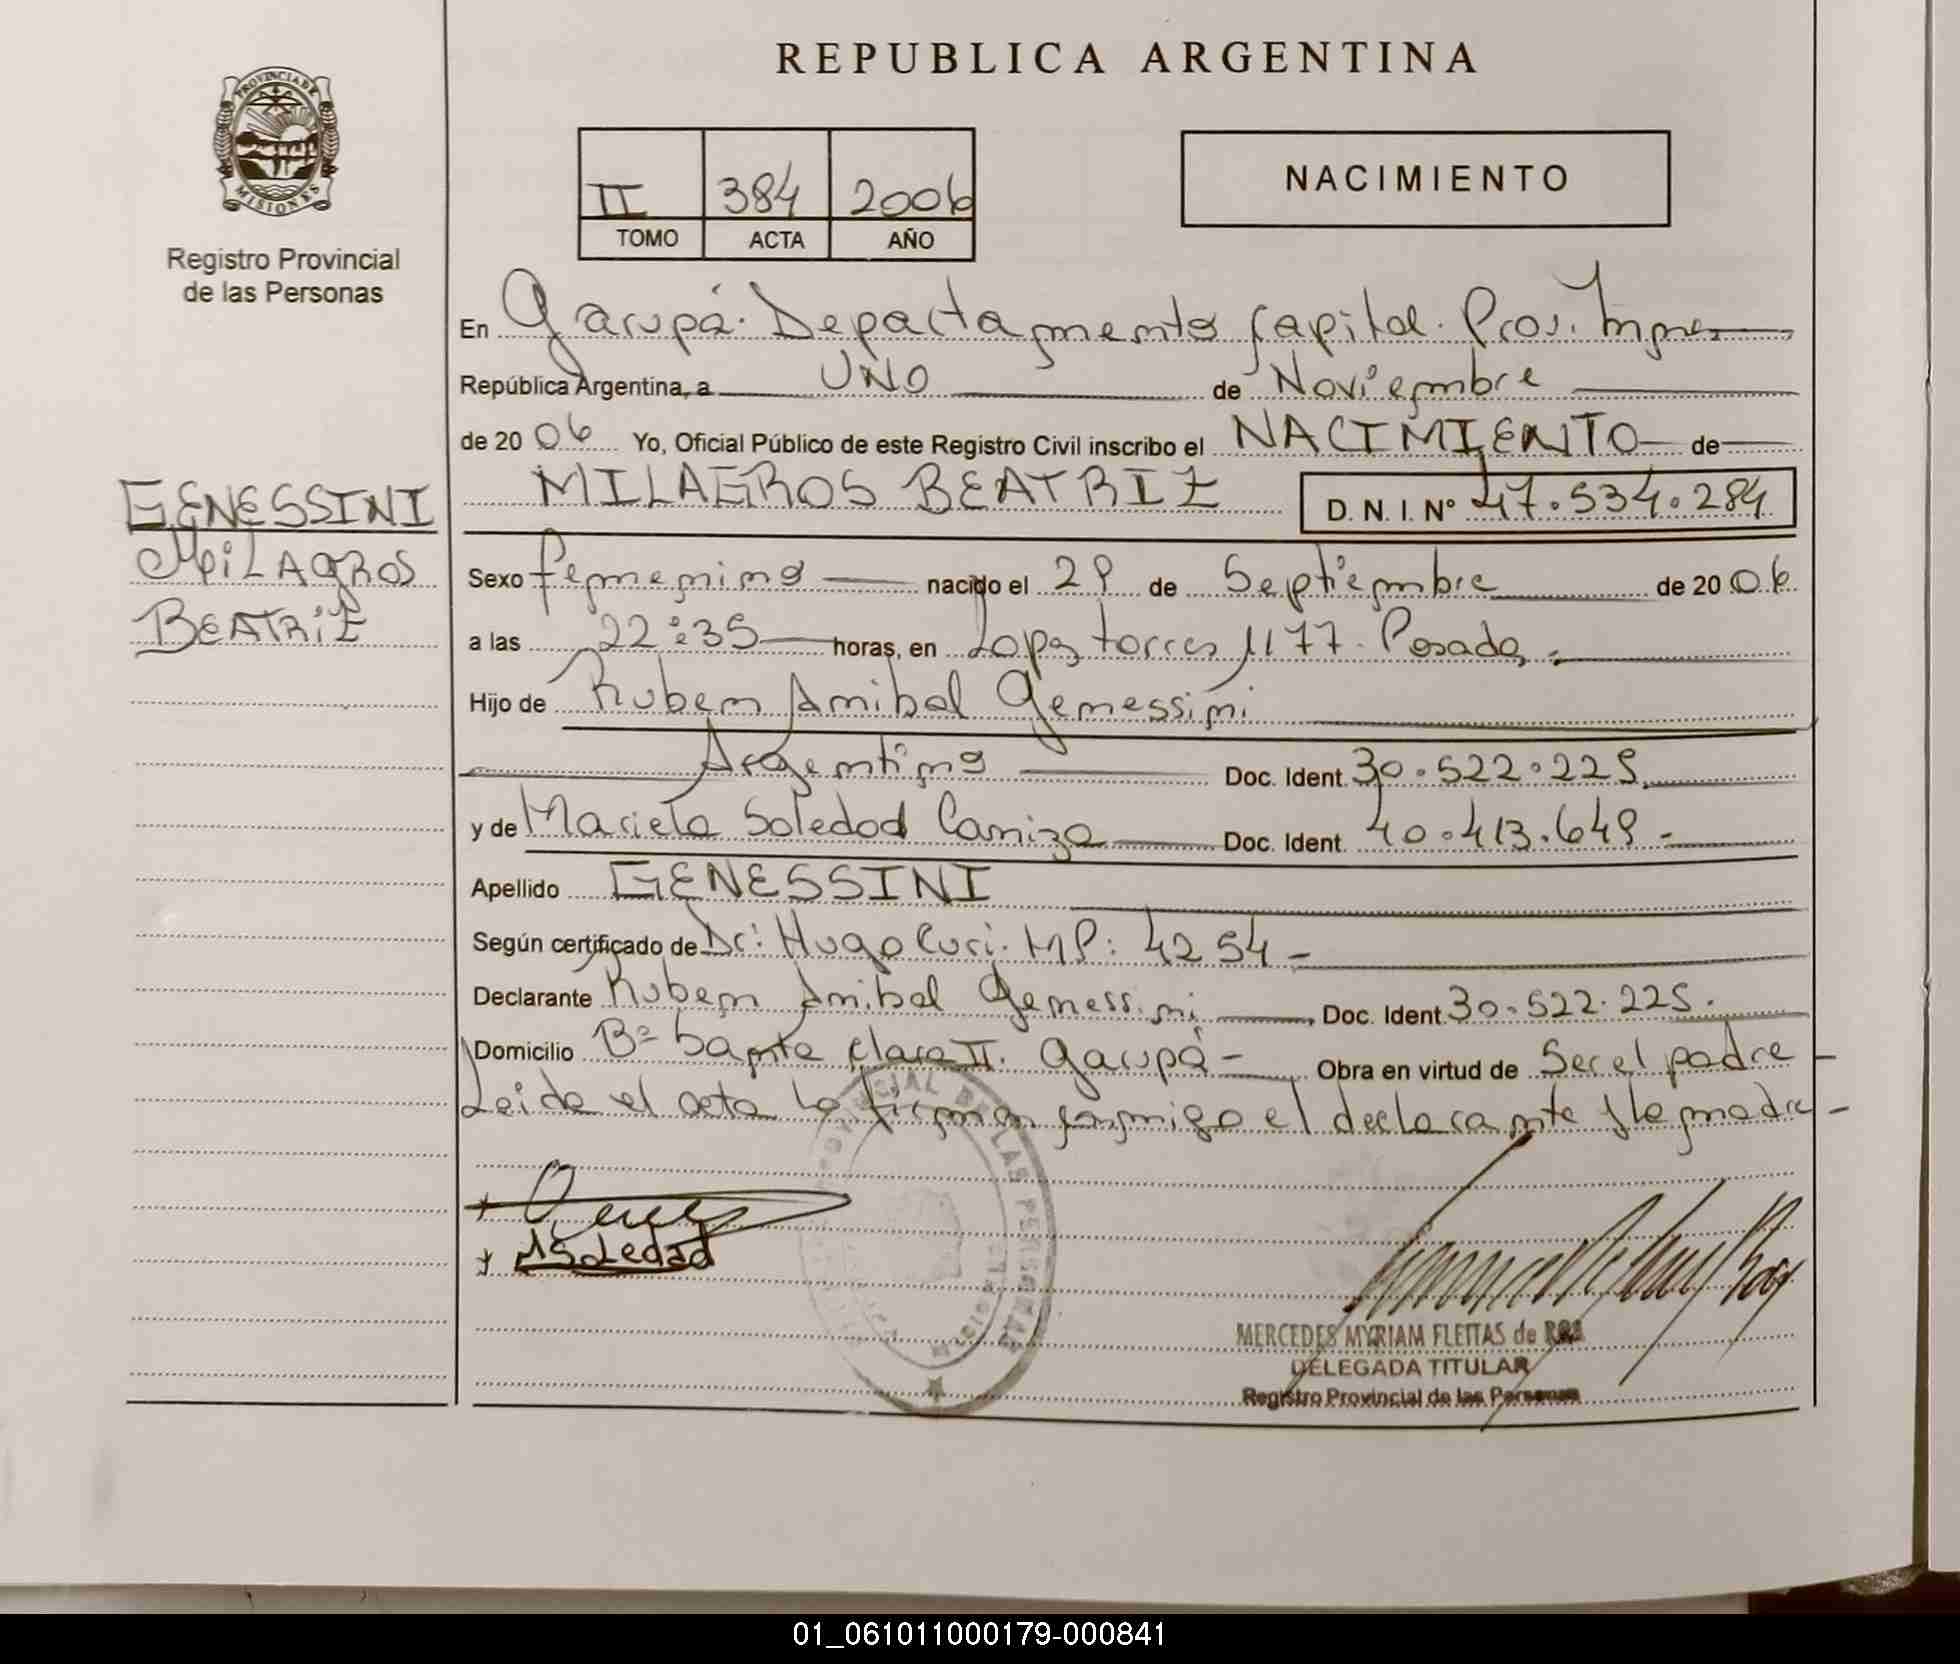 REPUBLICA ARGENTINA
PROVINCIA DE MISIONES
Registro Provincial
de las Personas
II 384 2006
TOMO ACTA AÑO
NACIMIENTO
En Garupá. Departamento Capital. Prov. Mnes
República Argentina, a UNO de Noviembre
de 20 06 Yo, Oficial Público de este Registro Civil inscribo el NACIMIENTO de
MILAGROS BEATRIZ D. N. I. N° 47.534.284
GENESSINI
MILAGROS
BEATRIZ
Sexo femenino nacido el 29 de Septiembre de 20 06
a las 22:35 horas, en Lopez torres 1177. Posadas.
Hijo de Ruben Anibal Genessini
Argentino Doc. Ident. 30.522.225
y de Mariela Soledad Caniza Doc. Ident. 40.413.649 -
Apellido GENESSINI
Según certificado de Dr: Hugo Curi. MP: 4254 -
Declarante Ruben Anibal Genessini Doc. Ident. 30.522.225.
Domicilio B° Santa Clara II. Garupá - Obra en virtud de Ser el padre -
Leida el acta la firman conmigo el declarante y la madre -
MSoledad
PROVINCIAL DE LAS PERSONAS
MERCEDES MYRIAM FLEITAS de ROA
DELEGADA TITULAR
Registro Provincial de las Personas
01_061011000179-000841